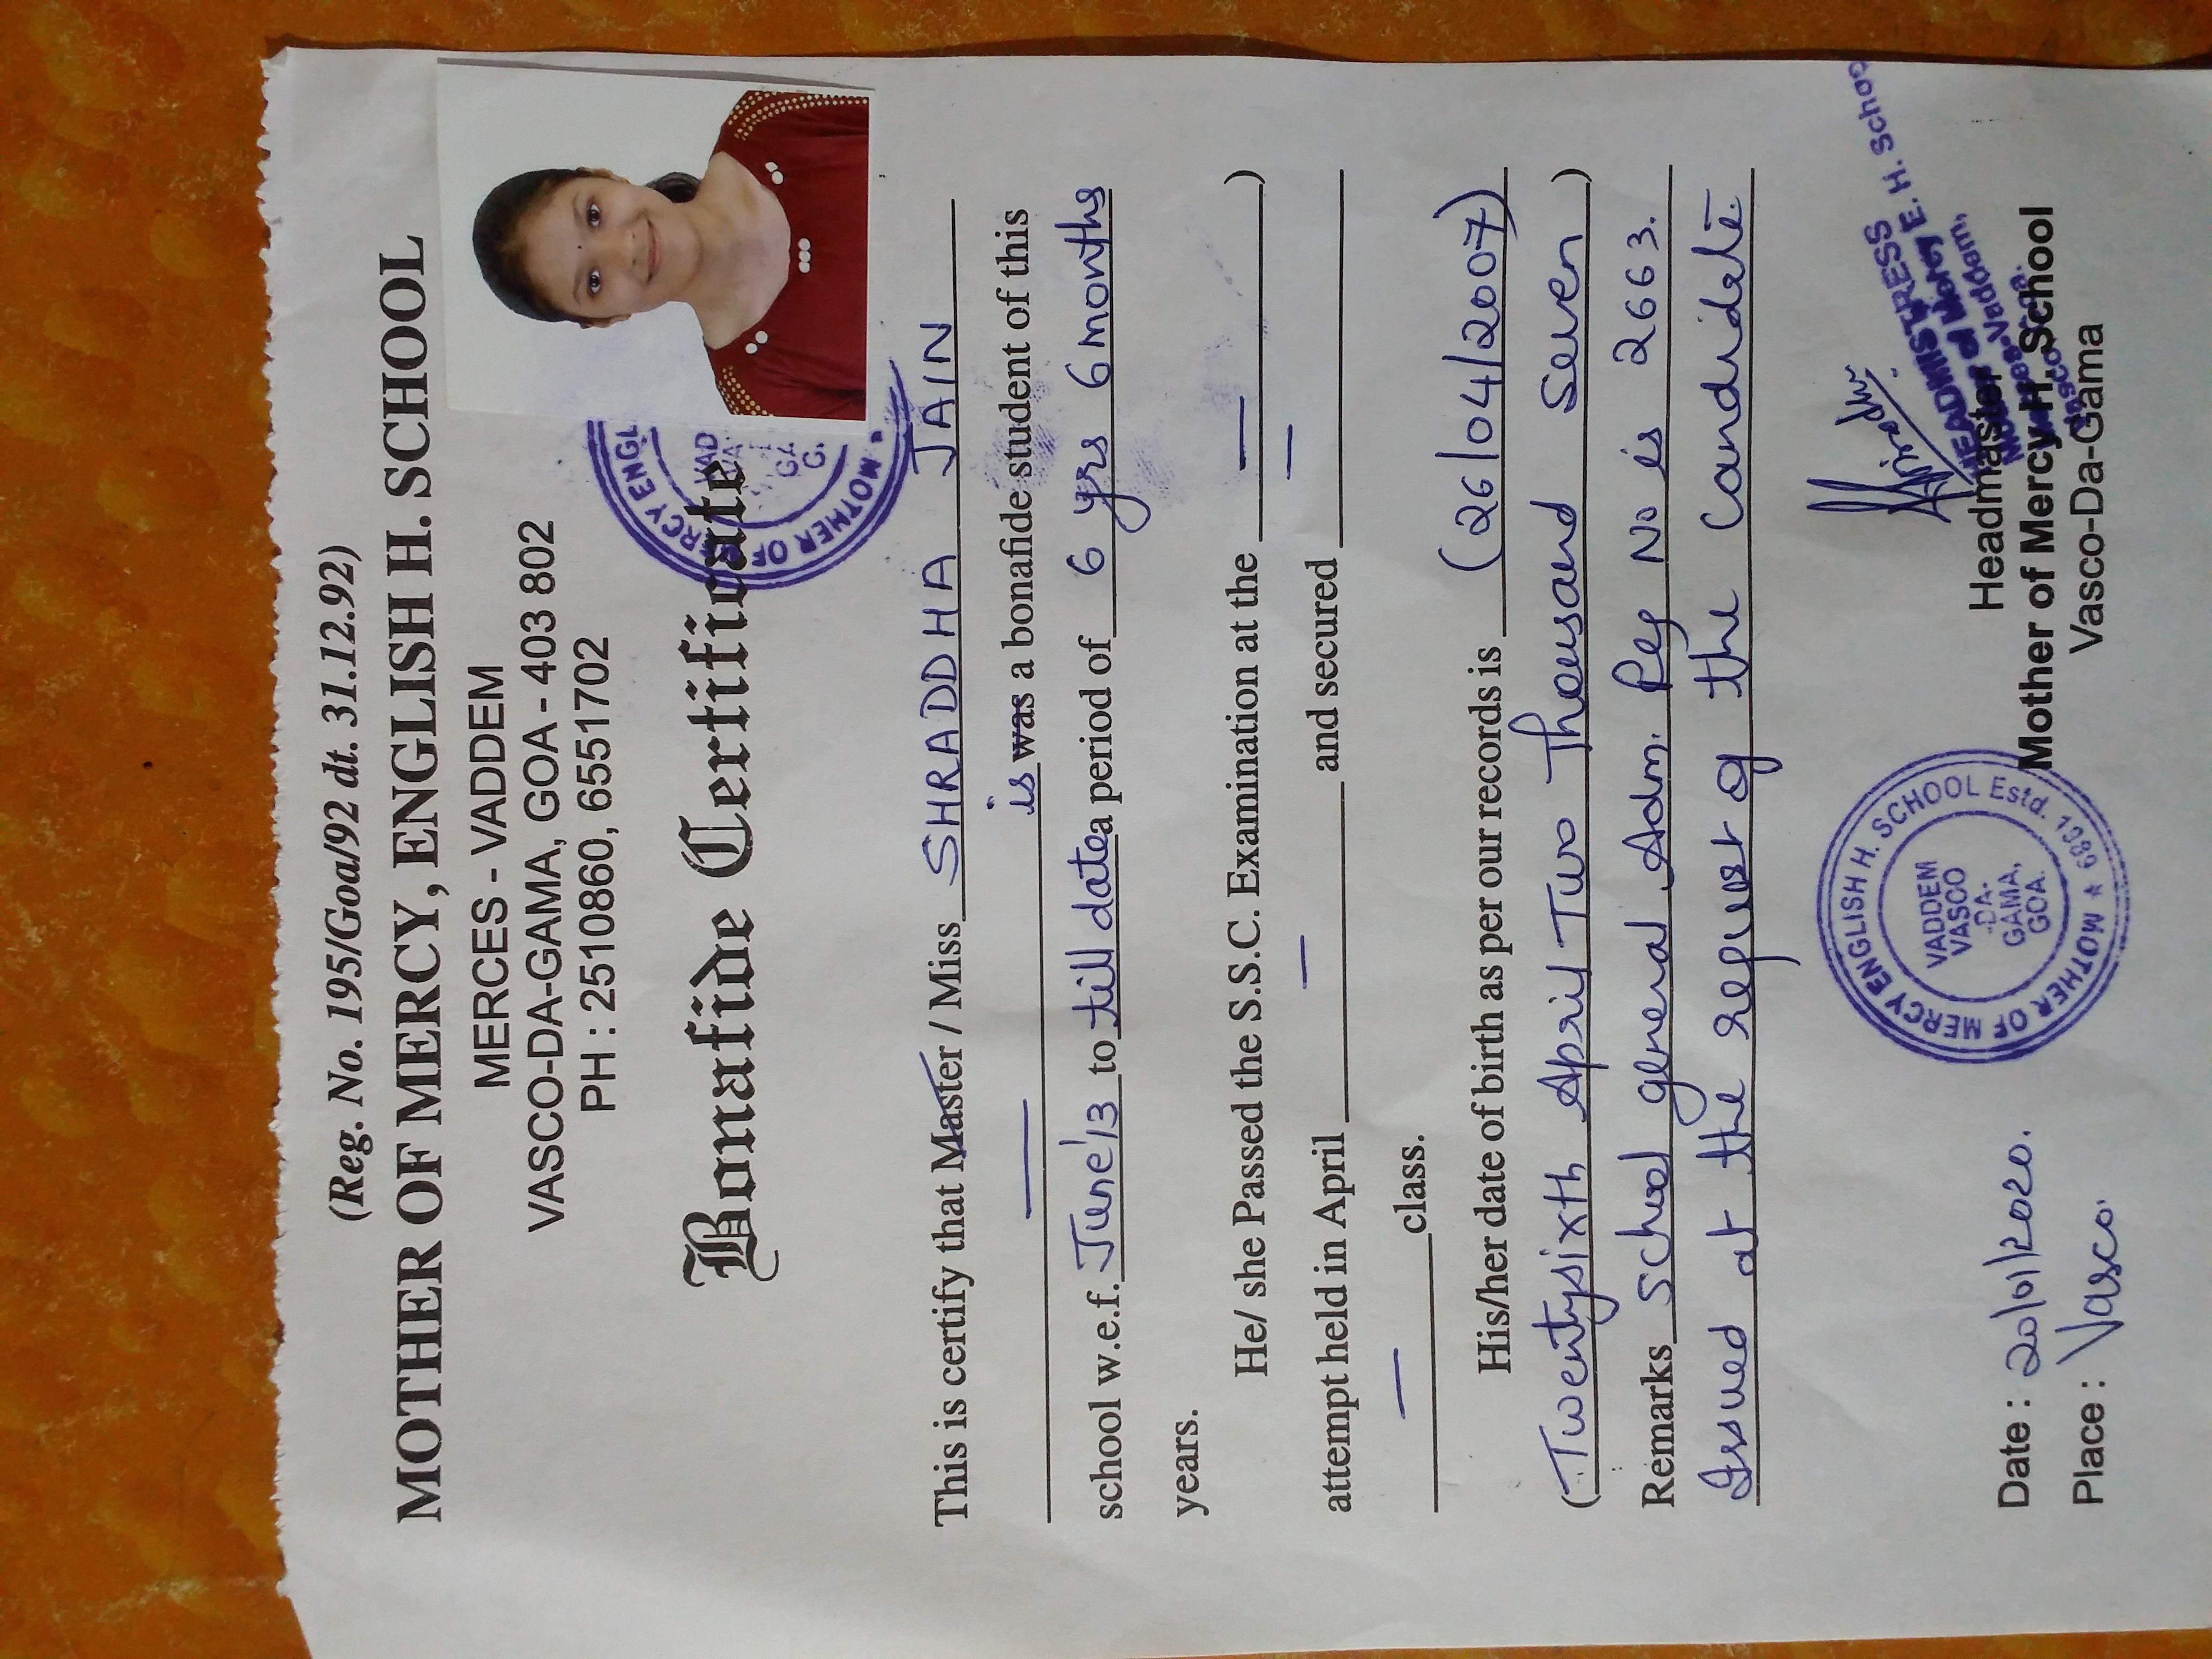 (Reg. No. 195/Goa/92 dt. 31.12.92)
MOTHER OF MERCY, ENGLISH H. SCHOOL
MERCES - VADDEM
VASCO-DA-GAMA, GOA - 403 802
PH : 2510860, 6551702
Bonafide Certificate
MOTHER OF MERCY ENGL
This is certify that Master / Miss SHRADDHA JAIN
— is was a bonafide student of this
school w.e.f. June'13 to till date a period of 6 yrs 6 months
years.
He/ she Passed the S.S.C. Examination at the — )
attempt held in April — and secured —
— class.
His/her date of birth as per our records is (26/04/2007)
(Twentysixth April Two Thousand Seven)
Remarks School general Adm. Reg No is 2663.
Issued at the request of the candidate.
MOTHER OF MERCY ENGLISH H. SCHOOL Estd. 1989 ★
VADDEM
VASCO
-DA-
GAMA,
GOA.
HEADMISTRESS
Mother of Mercy E. H. School
Merces-Vaddem,
Headmaster
Mother of Mercy H. School
Vasco-Da-Gama
Date : 20/01/2020.
Place : Vasco.